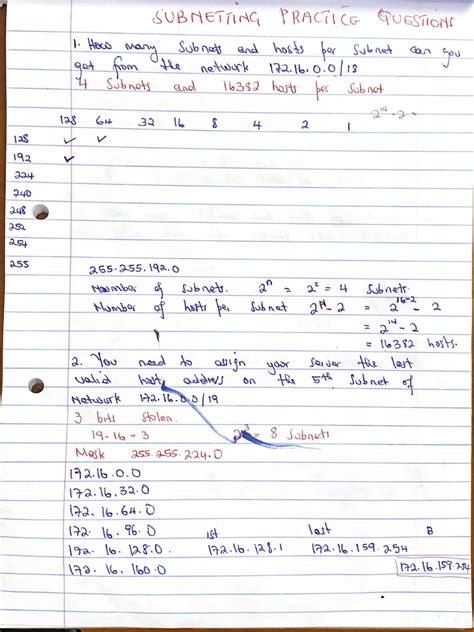 SUBNETTING PRACTICE QUESTIONS
1. How many Subnets and hosts per Subnet can you
get from the network 172.16.0.0/18
4 Subnets and 16382 hosts per Subnet
2^14 - 2
128 64 32 16 8 4 2 1
128 ✓ ✓
192 ✓
224
240
248
252
254
255
255.255.192.0
Number of Subnets. 2^n = 2^2 = 4 Subnets.
Number of hosts per Subnet 2^14 - 2 = 2^16-2 - 2
= 2^14 - 2
= 16382 hosts.
2. You need to assign your server the last
valid host address on the 5th Subnet of
Network 172.16.0.0/19
3 bits stolen.
19-16 = 3 2^3 = 8 Subnets
Mask 255.255.224.0
172.16.0.0
172.16.32.0
172.16.64.0
172.16.96.0 1st last B
172.16.128.0 172.16.128.1 172.16.159.254
172.16.160.0 172.16.159.254